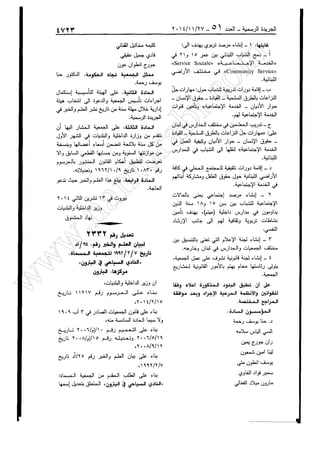 الجريدة الرسمية - العدد ٥١ - ٢٠١٤/١١/٢٧
٤٧٢٣
غايتها: ١ - إنشاء مرصد تربوي يهدف الى:
أ - دمج الشباب اللبناني بين عمر ١٥ و٢١ في
«الخدمة الاجتماعية» «Service Sociale»
«Community Service» في مختلف الأراضي
اللبنانية.
ب - إقامة دورات تدريبية للشباب حول: مهارات حل
النزاعات بالطرق السلمية - القيادة - حقوق الإنسان -
حوار الأديان - الخدمة الاجتماعية، وتأمين قنوات
الخدمة الاجتماعية لهم.
ج - تدريب المعلمين في مختلف المدارس في لبنان
على: «مهارات حل النزاعات بالطرق السلمية - القيادة
- حقوق الإنسان - حوار الأديان وكيفية العمل في
الخدمة الاجتماعية» لنقلها الى الشباب في المدارس
اللبنانية.
د - إقامة دورات تثقيفية للمجتمع المحلي في كافة
الأراضي اللبنانية حول حقوق الطفل ومشاركة أبنائهم
في الخدمة الاجتماعية.
٢ - إنشاء مرصد إجتماعي يعنى بالحالات
الإجتماعية للشباب بين سن ١٥ و١٨ سنة الذين
يداومون في مدارس داخلية بهدف تأمين
نشاطات تربوية وثقافية لهم الى جانب الإرشاد
النفسي.
٣ - إنشاء لجنة الإعلام التي تعنى بالتنسيق بين
مختلف الجمعيات والمدارس في لبنان وخارجه.
٤ - إنشاء لجنة قانونية تشرف على عمل الجمعية،
يتولى رئاستها محام يهتم بالأمور القانونية لمشاريع
الجمعية.
على أن تطبق البنود المذكورة أعلاه وفقا
للقوانين والأنظمة المرعية الإجراء وبعد موافقة
المراجع المختصة.
المؤسسون السادة:
د. حنا يوسف رحمة
المي الياس سلامه
ران جورج يمين
لينا أمين شمعون
يوسف الطون متى
سمير فواد الغاوي
مارون ميلاد الفغالي
كليمه مخايل الفغالي
فادي جميل حقيقي
جورج انطوان عون
ممثل الجمعية تجاه الحكومة: الدكتور حنا
يوسف رحمة.
المادة الثانية: على الهيئة التأسيسية إستكمال
اجراءات تأسيس الجمعية والدعوة الى انتخاب هيئة
إدارية خلال مهلة سنة من تاريخ نشر العلم والخبر في
الجريدة الرسمية.
المادة الثالثة: على الجمعية المشار اليها أن
تتقدم من وزارة الداخلية والبلديات في الشهر الأول
من كل سنة بلائحة تتضمن أسماء أعضائها وبنسخة
عن موازنتها السنوية ومن حسابها القطعي السابق وإلا
تعرضت لتطبيق أحكام القانون المنشور بالمرسوم
رقم ١٠٨٣٠ تاريخ ١٩٦٢/١٠/٩ وتعديلاته.
المادة الرابعة: يبلغ هذا العلم والخبر حيث تدعو
الحاجة.
بيروت في ١٣ تشرين الثاني ٢٠١٤
وزير الداخلية والبلديات
نهاد المشنوق
تعديل رقم ٢٣٣٢
لبيان العلم والخبر رقم ٢٥/أد
تاريخ ١٩٩٢/٢/٧ للجمعية المسماة:
«النادي السياحي في البترون»
مركزها: البترون
أن وزير الداخلية والبلديات،
بناء على المرسوم رقم ١١٢١٧ تاريخ
٢٠١٤/٢/١٥،
بناء على قانون الجمعيات الصادر في ٣ آب ١٩٠٩
ولا سيما المادة السادسة منه،
بناء على التعميم رقم ١٠/إم/٢٠٠٦ تاريخ
٢٠٠٦/٥/١٩ وتعديليه رقم ١٥/إم/٢٠٠٨ تاريخ
٢٠٠٨/٩/١٢،
بناء على بيان العلم والخبر رقم ٢٥/أد تاريخ
١٩٩٢/٢/٧،
بناء على الطلب المقدم من الجمعية المسماة:
«النادي السياحي في البترون» المتعلق بتعديل إسمها